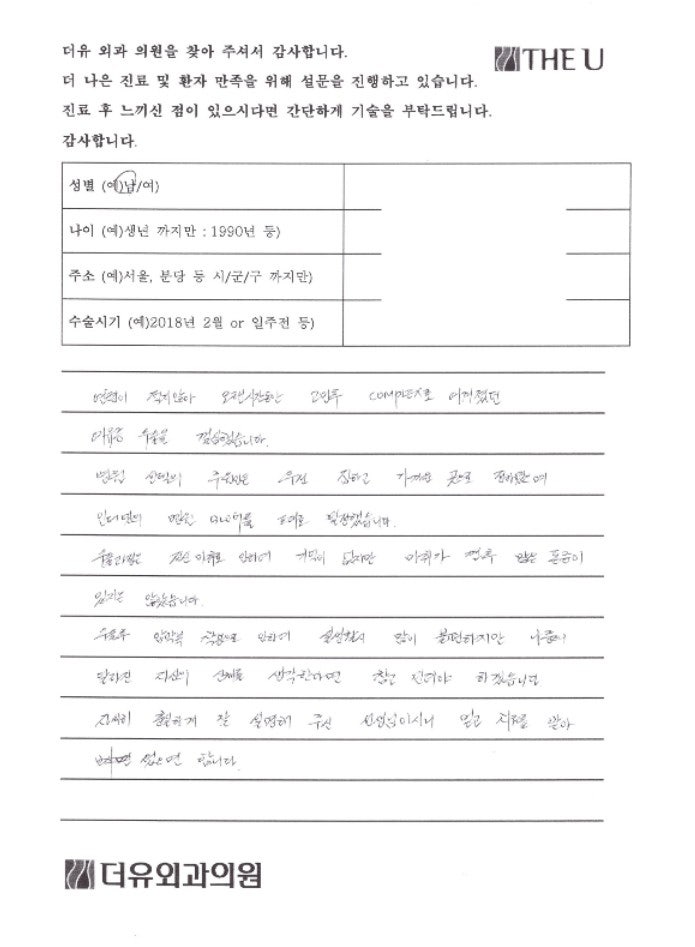 더유 외과 의원을 찾아 주셔서 감사합니다.
THE U
더 나은 진료 및 환자 만족을 위해 설문을 진행하고 있습니다.
진료 후 느끼신 점이 있으시다면 간단하게 기술을 부탁드립니다.
감사합니다.
성별 (예)남/여)
나이 (예)생년 까지만 : 1990년 등)
주소 (예)서울, 분당 등 시/군/구 까지만)
수술시기 (예)2018년 2월 or 일주전 등)
연령이 적지않아 오랜시간동안 고민투 COMPLEX로 여겨졌던
여유증 수술을 결심했습니다.
병원 선택의 주원인은 우선 집하고 가까운 곳으로 정하였으며
인터넷의 병원 토대로 결정했습니다.
수술과정은 전신 마취로 인하여 기억이 없지만 마취가 깬후 많은 통증이
있지는 않았습니다.
수술후 압박복 착용으로 인하여 일상생활이 많이 불편하지만 나중에
달라진 자신의 신체를 생각한다면 참고 견뎌야 하겠습니다
자세히 친절하게 잘 설명해 주신 선생님이시니 믿고 시술을 받아
보았으면 합니다.
더유외과의원